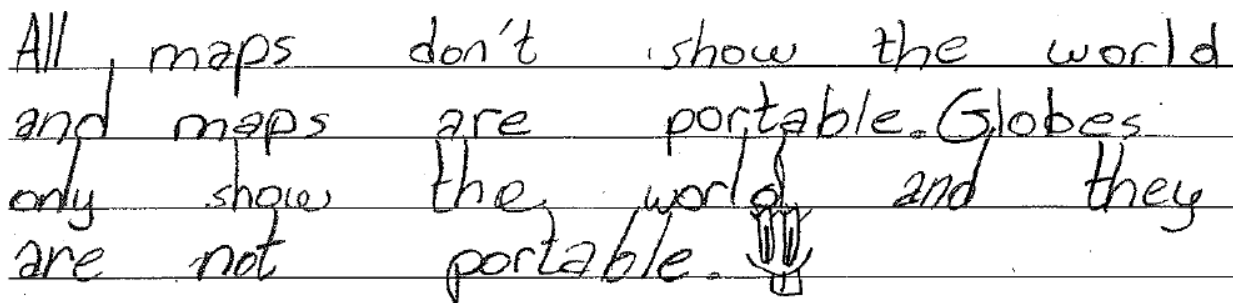 All maps don't show the world
and maps are portable. Globes
only show the world and they
are not portable.